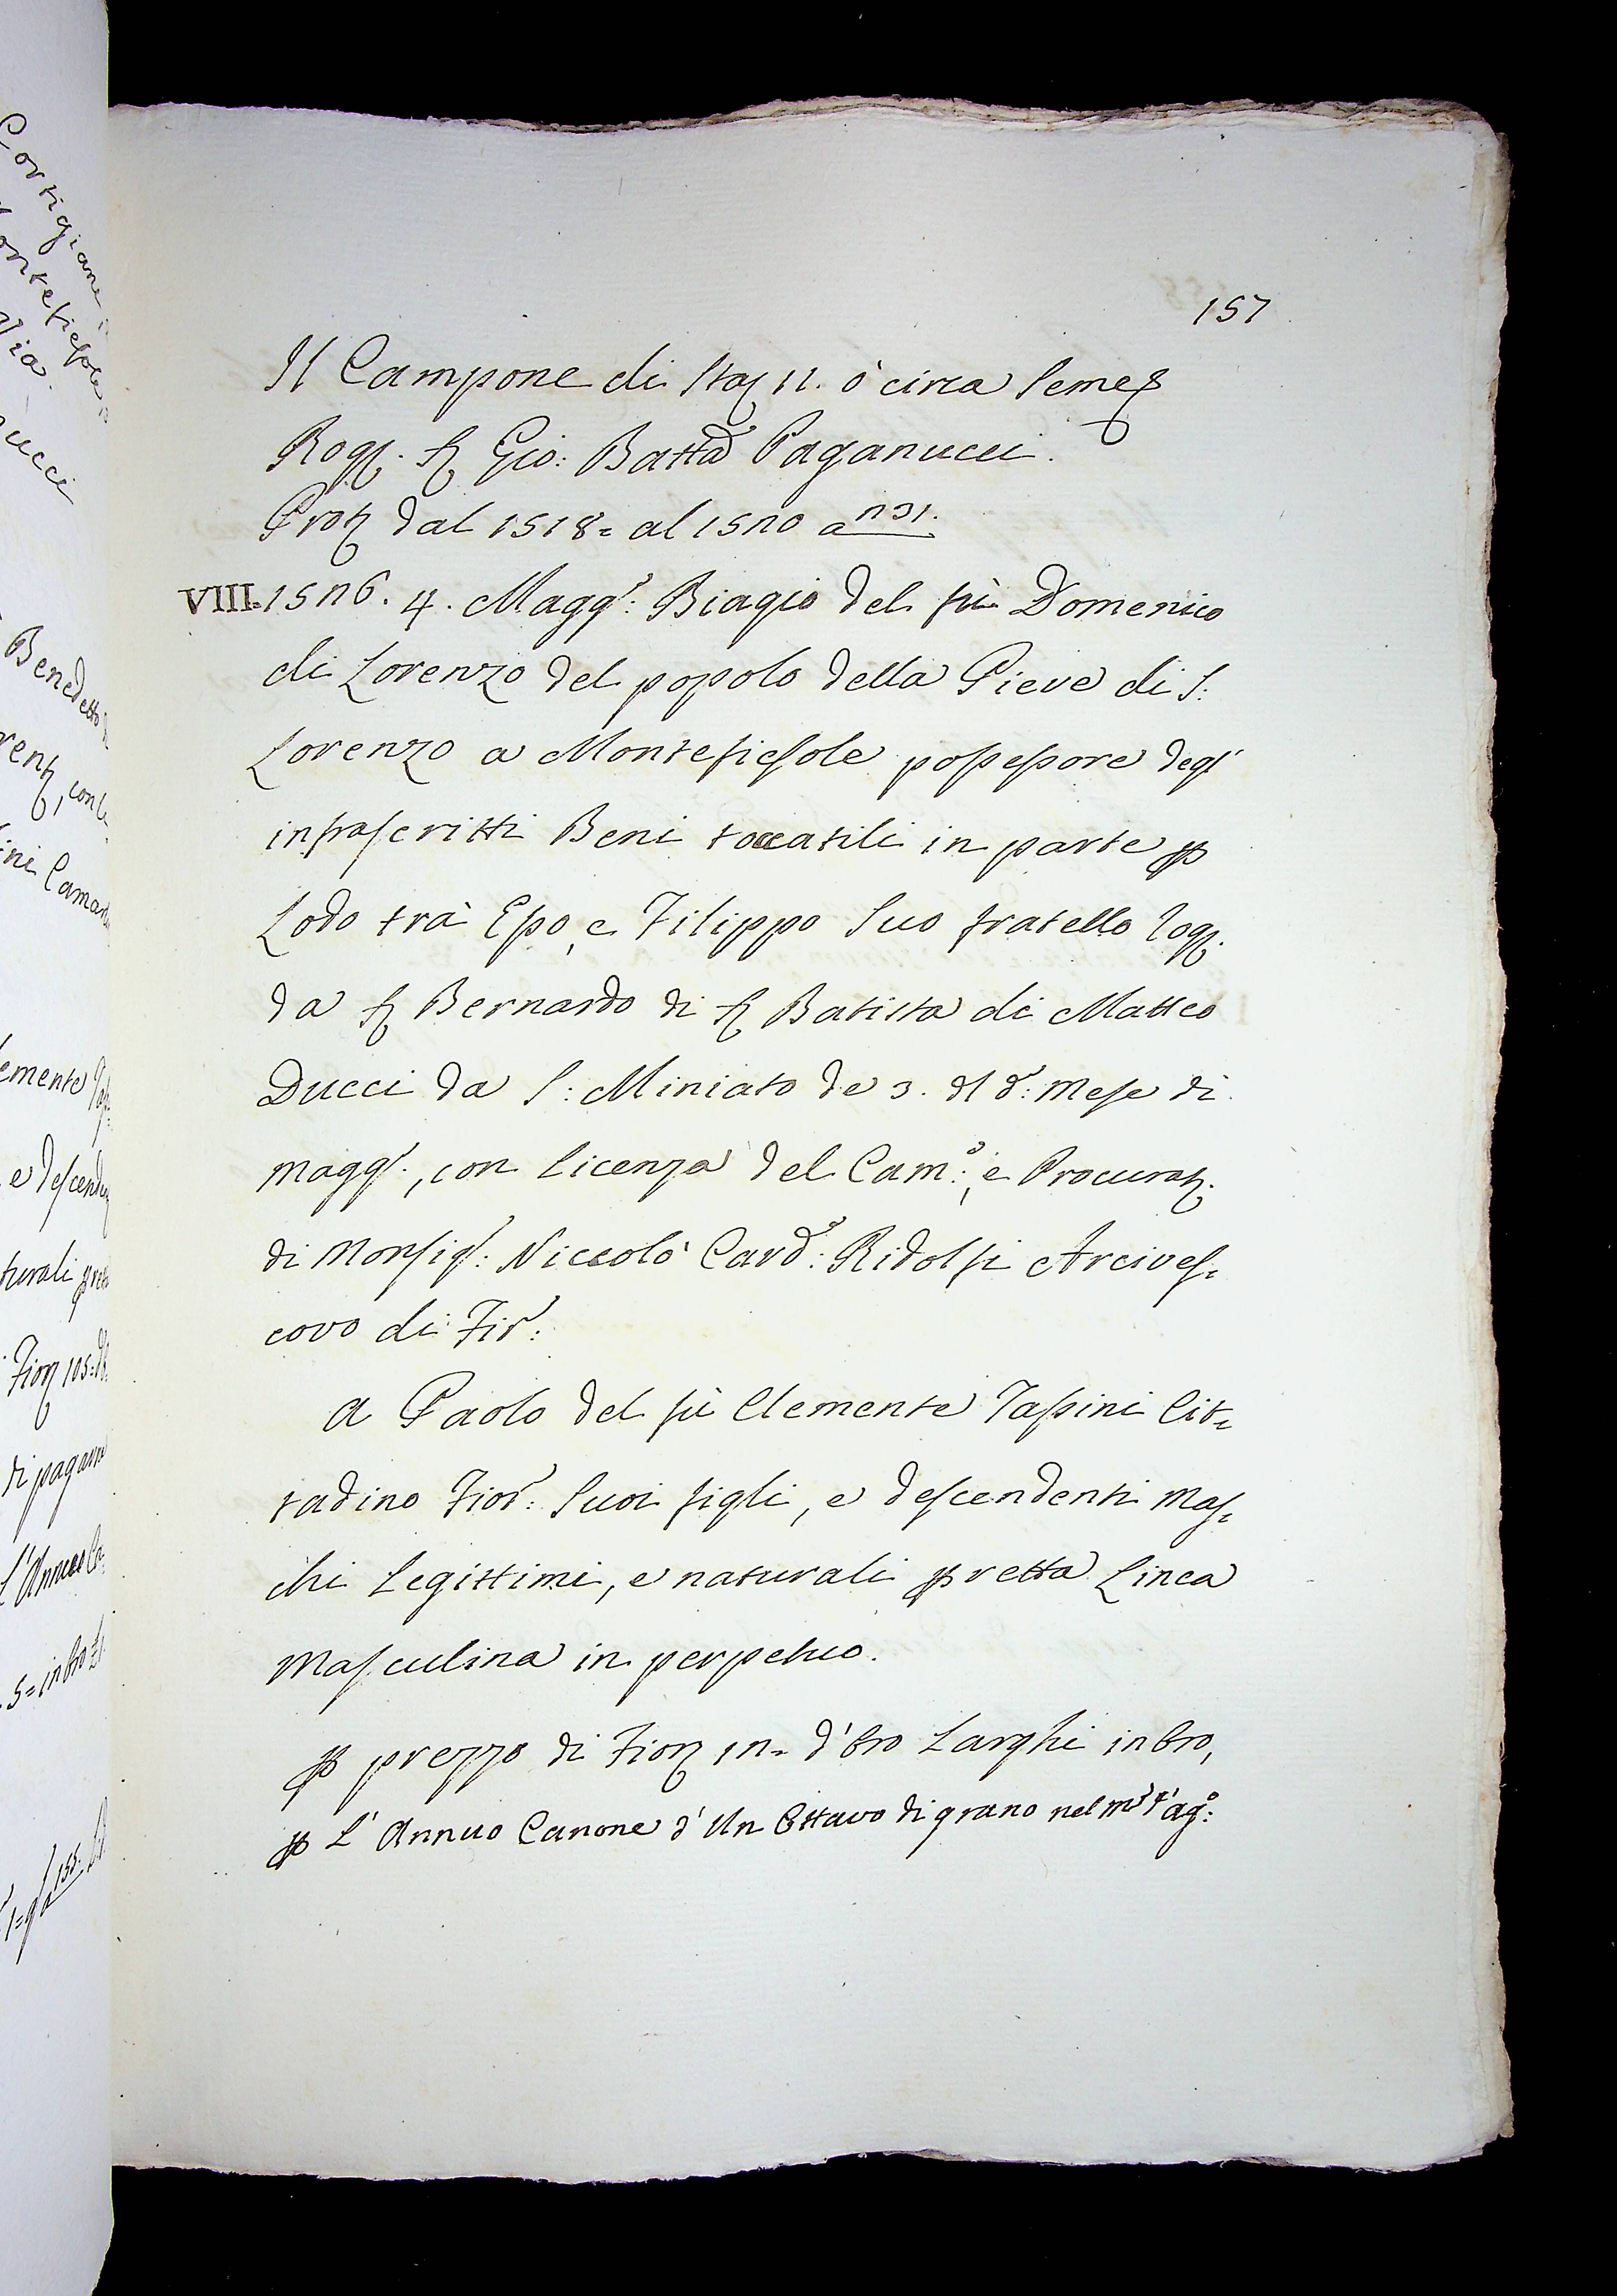 157
Il Campone di Sta 12. ò circa Seme
Rog. Gio: Batta Paganucci.
Prot dal 1518= al 1520 a 231.
VIII. 1526. 4. Magg: Biagio del fù Domenico
di Lorenzo del popolo della Pieve di S:
Lorenzo a Montefiesole possessore degl'
infrascritti Beni toccatili in parte p
Lodo trà Esso, e Filippo Suo fratello rog.
da Bernardo di Batista di Matteo
Ducci da S: Miniato de 3. dl d: Mese di
Magg., con licenza del Cam:, e Procurat.
di Monsig: Niccolò Card: Ridolfi Arcives=
covo di Fir:
a Paolo del fù Clemente Tassini Cit=
tadino Fior: Suoi figli, e descendenti Mas=
chi Legittimi, e naturali p retta Linea
Masculina in perpetuo.
p prezzo di Fior 12= d'Oro Larghi in Oro,
p L'Annuo Canone d'Un Ottavo di grano nel m: d'ag:
Benedetto
gia.
ucci
emente
e descenden
turali p rett
Fior 105:
di pagam
L'Annuo Ca=
5= in Oro
155.